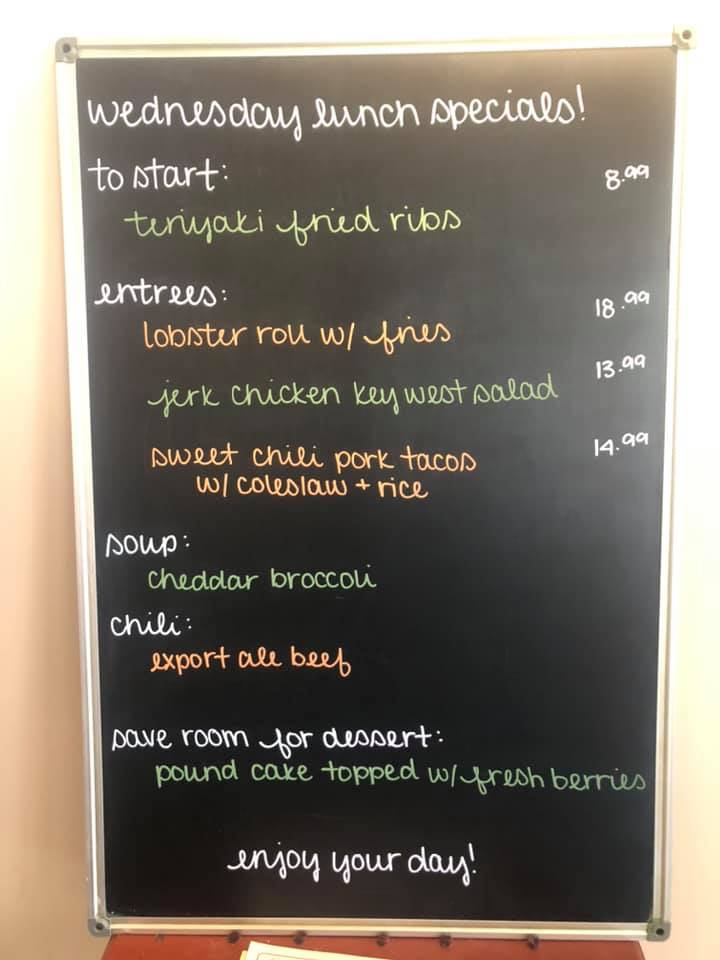 wednesday lunch specials!
to start: 8.99
teriyaki fried ribs
entrees: 18.99
lobster roll w/ fries
jerk chicken key west salad 13.99
sweet chili pork tacos 14.99
w/ coleslaw + rice
soup:
cheddar broccoli
chili:
export ale beef
save room for dessert:
pound cake topped w/ fresh berries
enjoy your day!